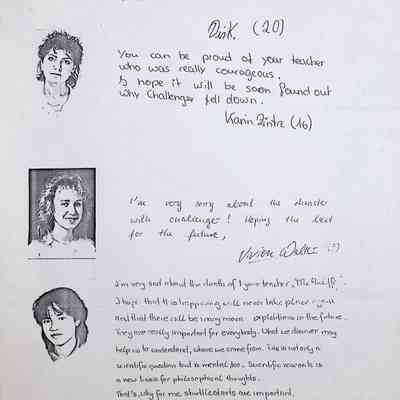 Dirk. (20)
You can be proud of your teacher
who was really courageous.
I hope it will be soon found out
why Challenger fell down.
Karin Zintz (16)
I'm very sorry about the disaster
with challenger! Hoping the best
for the future,
Vivien
I'm very sad about the death of your teacher,
I hope that this happening will never take place again
and that there will be many more explorations in the future.
They are really important for everybody. What we discover may
help us to understand, where we come from. This is not only a
scientific question but a mental too. Scientific research is
a new basis for philosophical thoughts.
That's, why for me shuttlestarts are important.